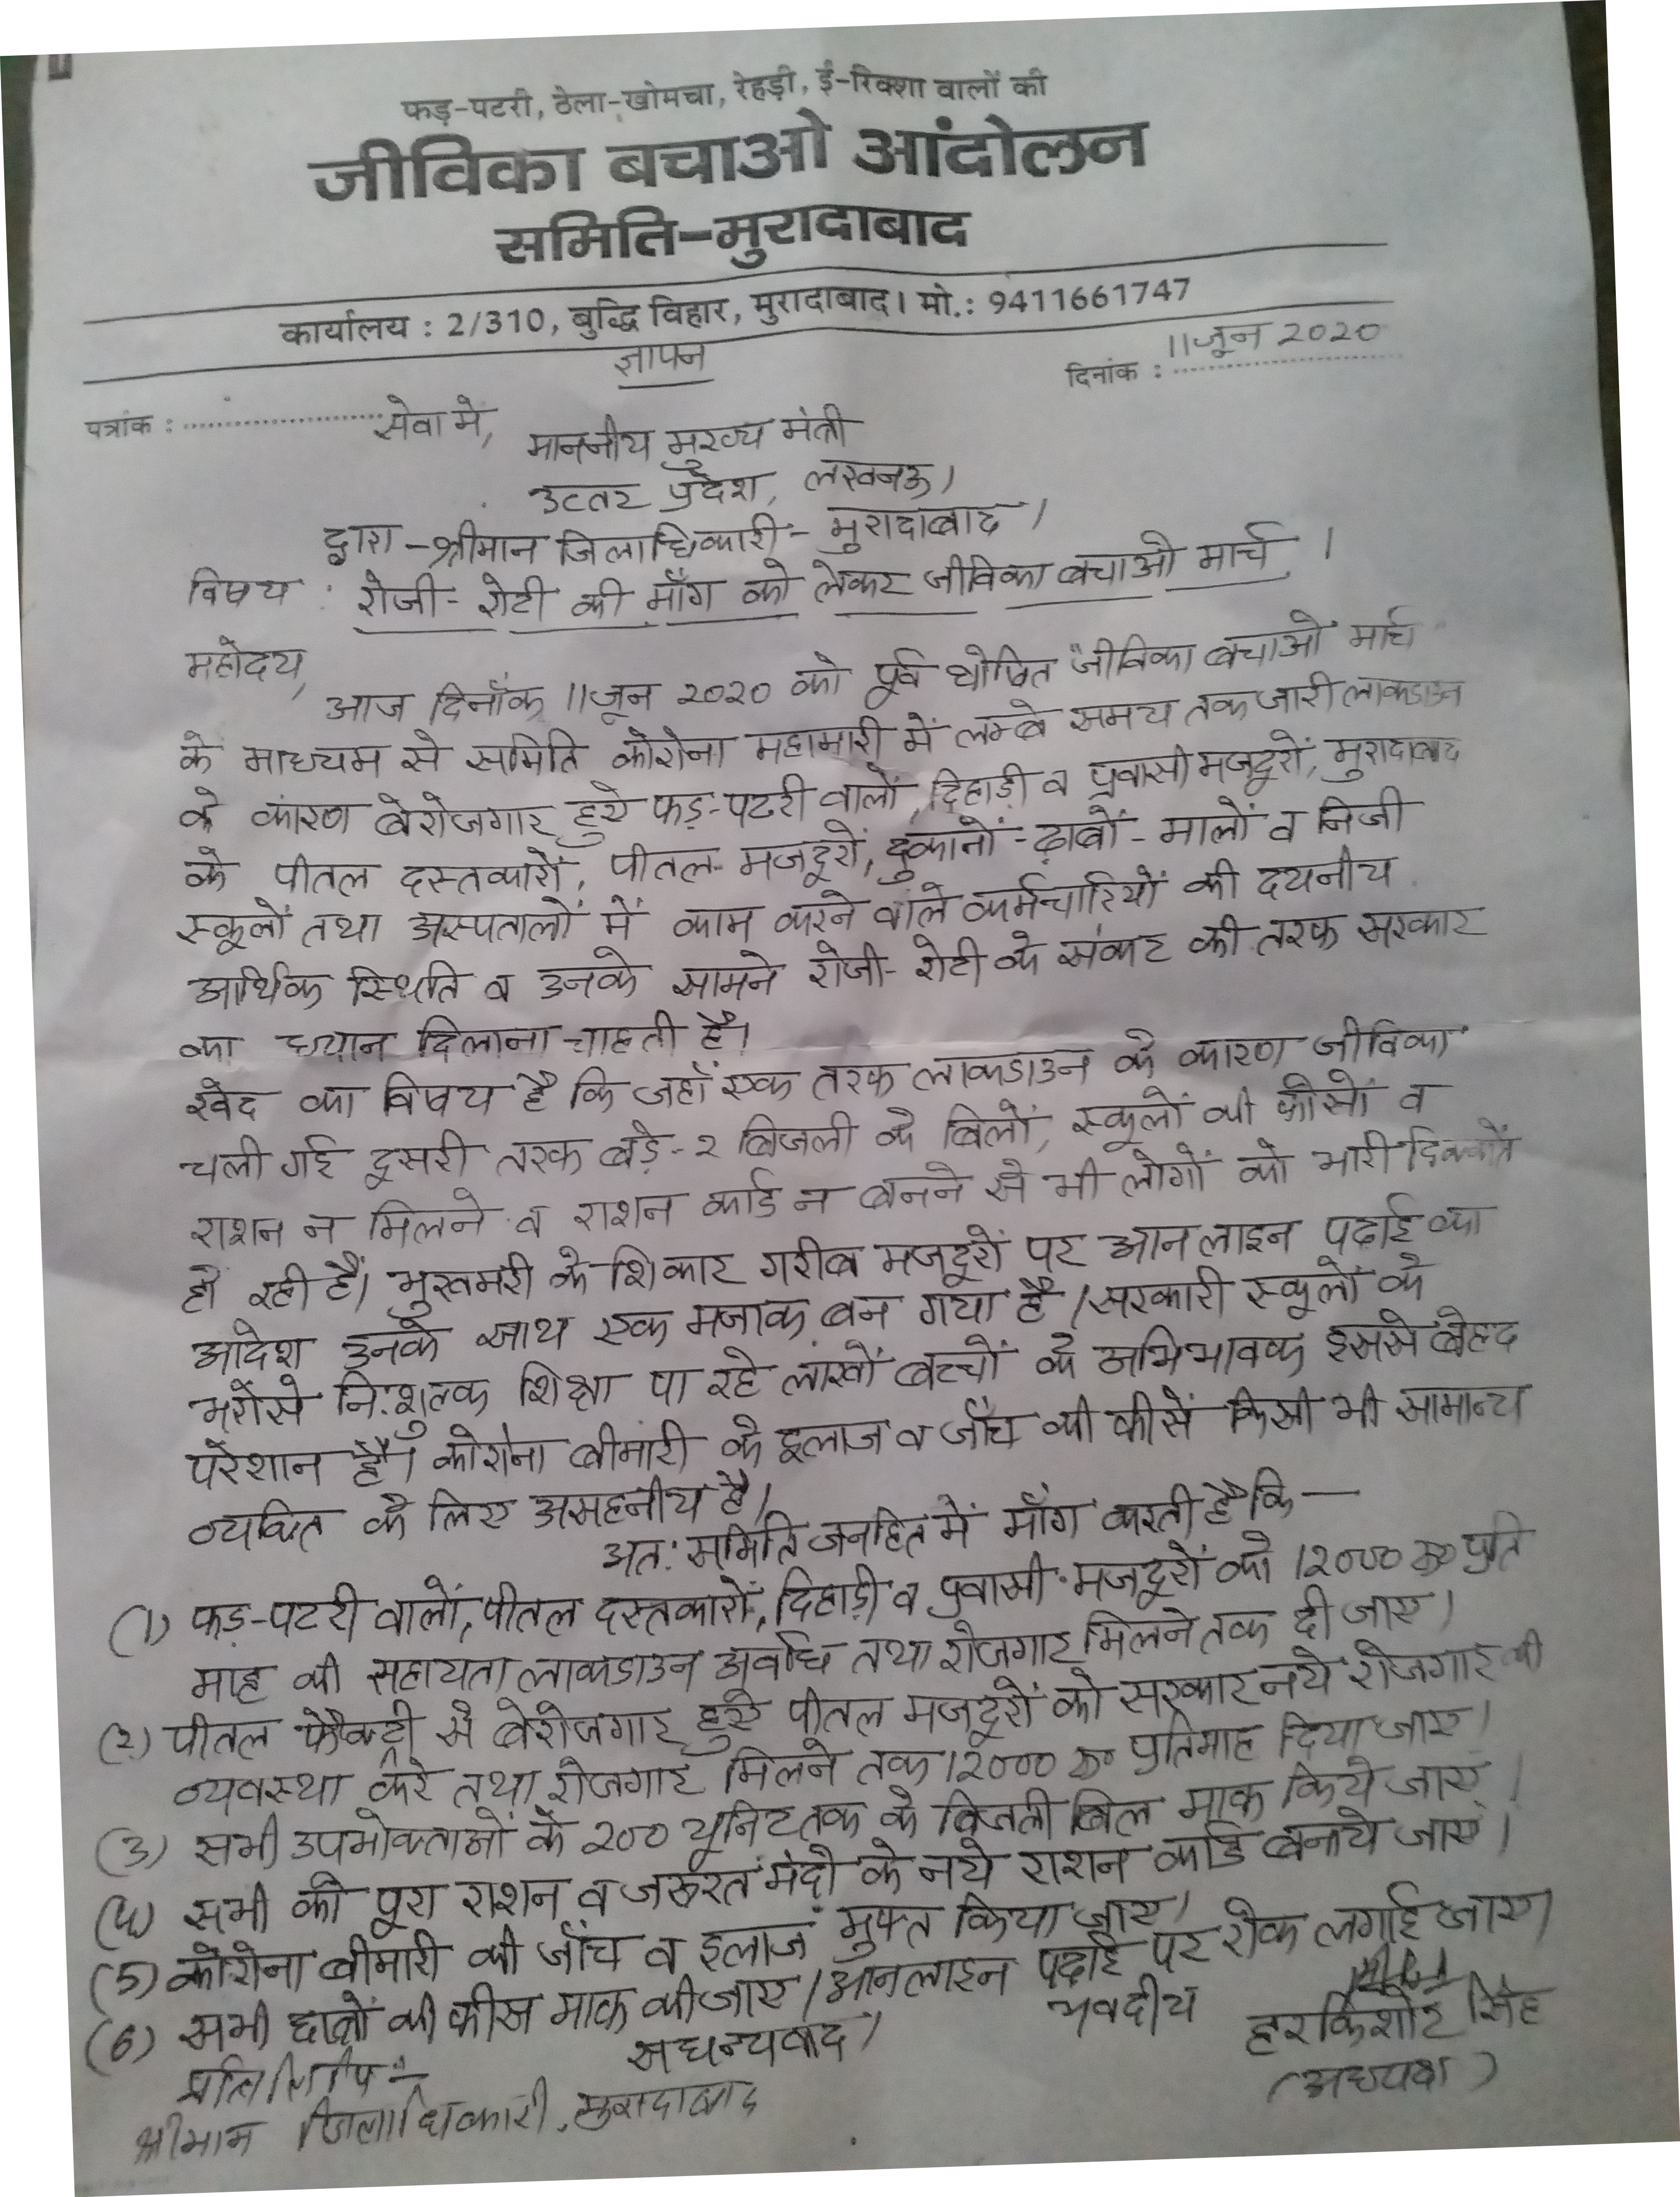 फड़-पटरी, ठेला-खोमचा, रेहड़ी, ई-रिक्शा वालों की
जीविका बचाओ आंदोलन
समिति-मुरादाबाद
कार्यालय : 2/310, बुद्धि विहार, मुरादाबाद। मो.: 9411661747
ज्ञापन
दिनांक : 11 जून 2020
पत्रांक :
सेवा में,
माननीय मुख्य मंत्री
उत्तर प्रदेश, लखनऊ।
द्वारा - श्रीमान जिलाधिकारी - मुरादाबाद।
विषय : रोजी-रोटी की माँग को लेकर जीविका बचाओ मार्च।
महोदय,
आज दिनाँक 11 जून 2020 को पूर्व घोषित जीविका बचाओ मार्च
के माध्यम से समिति कोरोना महामारी में लम्बे समय तक जारी लाकडाउन
के कारण बेरोजगार हुये फड़-पटरी वालों, दिहाड़ी व प्रवासी मजदूरों, मुरादाबाद
के पीतल दस्तकारों, पीतल मजदूरों, दुकानों-ढ़ाबों-मालों व निजी
स्कूलों तथा अस्पतालों में काम करने वाले कर्मचारियों की दयनीय
आर्थिक स्थिति व उनके सामने रोजी-रोटी के संकट की तरफ सरकार
का ध्यान दिलाना चाहती है।
खेद का विषय है कि जहाँ एक तरफ लाकडाउन के कारण जीविका
चली गई दूसरी तरफ बड़े-२ बिजली के बिलों, स्कूलों की फीसों व
राशन न मिलने व राशन कार्ड न बनने से भी लोगों को भारी दिक्कतें
हो रही हैं। भुखमरी के शिकार गरीब मजदूरों पर आनलाइन पढ़ाई का
आदेश उनके साथ एक मजाक बन गया है। सरकारी स्कूलों के
भरोसे नि:शुल्क शिक्षा पा रहे लाखों बच्चों के अभिभावक इससे बेहद
परेशान है। कोरोना बीमारी के इलाज व जाँच की फीसें किसी भी सामान्य
व्यक्ति के लिए असहनीय है।
अत: समिति जनहित में माँग करती है कि —
(1) फड़-पटरी वालों, पीतल दस्तकारों, दिहाड़ी व प्रवासी मजदूरों को 12000 रू० प्रति
माह की सहायता लाकडाउन अवधि तथा रोजगार मिलने तक दी जाए।
(2) पीतल फैक्ट्री से बेरोजगार हुए पीतल मजदूरों को सरकार नये रोजगार की
व्यवस्था करे तथा रोजगार मिलने तक 12000 रू० प्रतिमाह दिया जाए।
(3) सभी उपभोक्ताओं के 200 यूनिट तक के बिजली बिल माफ किये जाएं।
(4) सभी को पूरा राशन व जरूरत मंदो के नये राशन कार्ड बनाये जाएं।
(5) कोरोना बीमारी की जाँच व इलाज मुफ्त किया जाए।
(6) सभी छात्रों की फीस माफ की जाए। आनलाइन पढ़ाई पर रोक लगाई जाए।
सधन्यवाद।
भवदीय
हरकिशोर सिंह
(अध्यक्ष)
प्रतिलिपि :-
श्रीमान जिलाधिकारी, मुरादाबाद